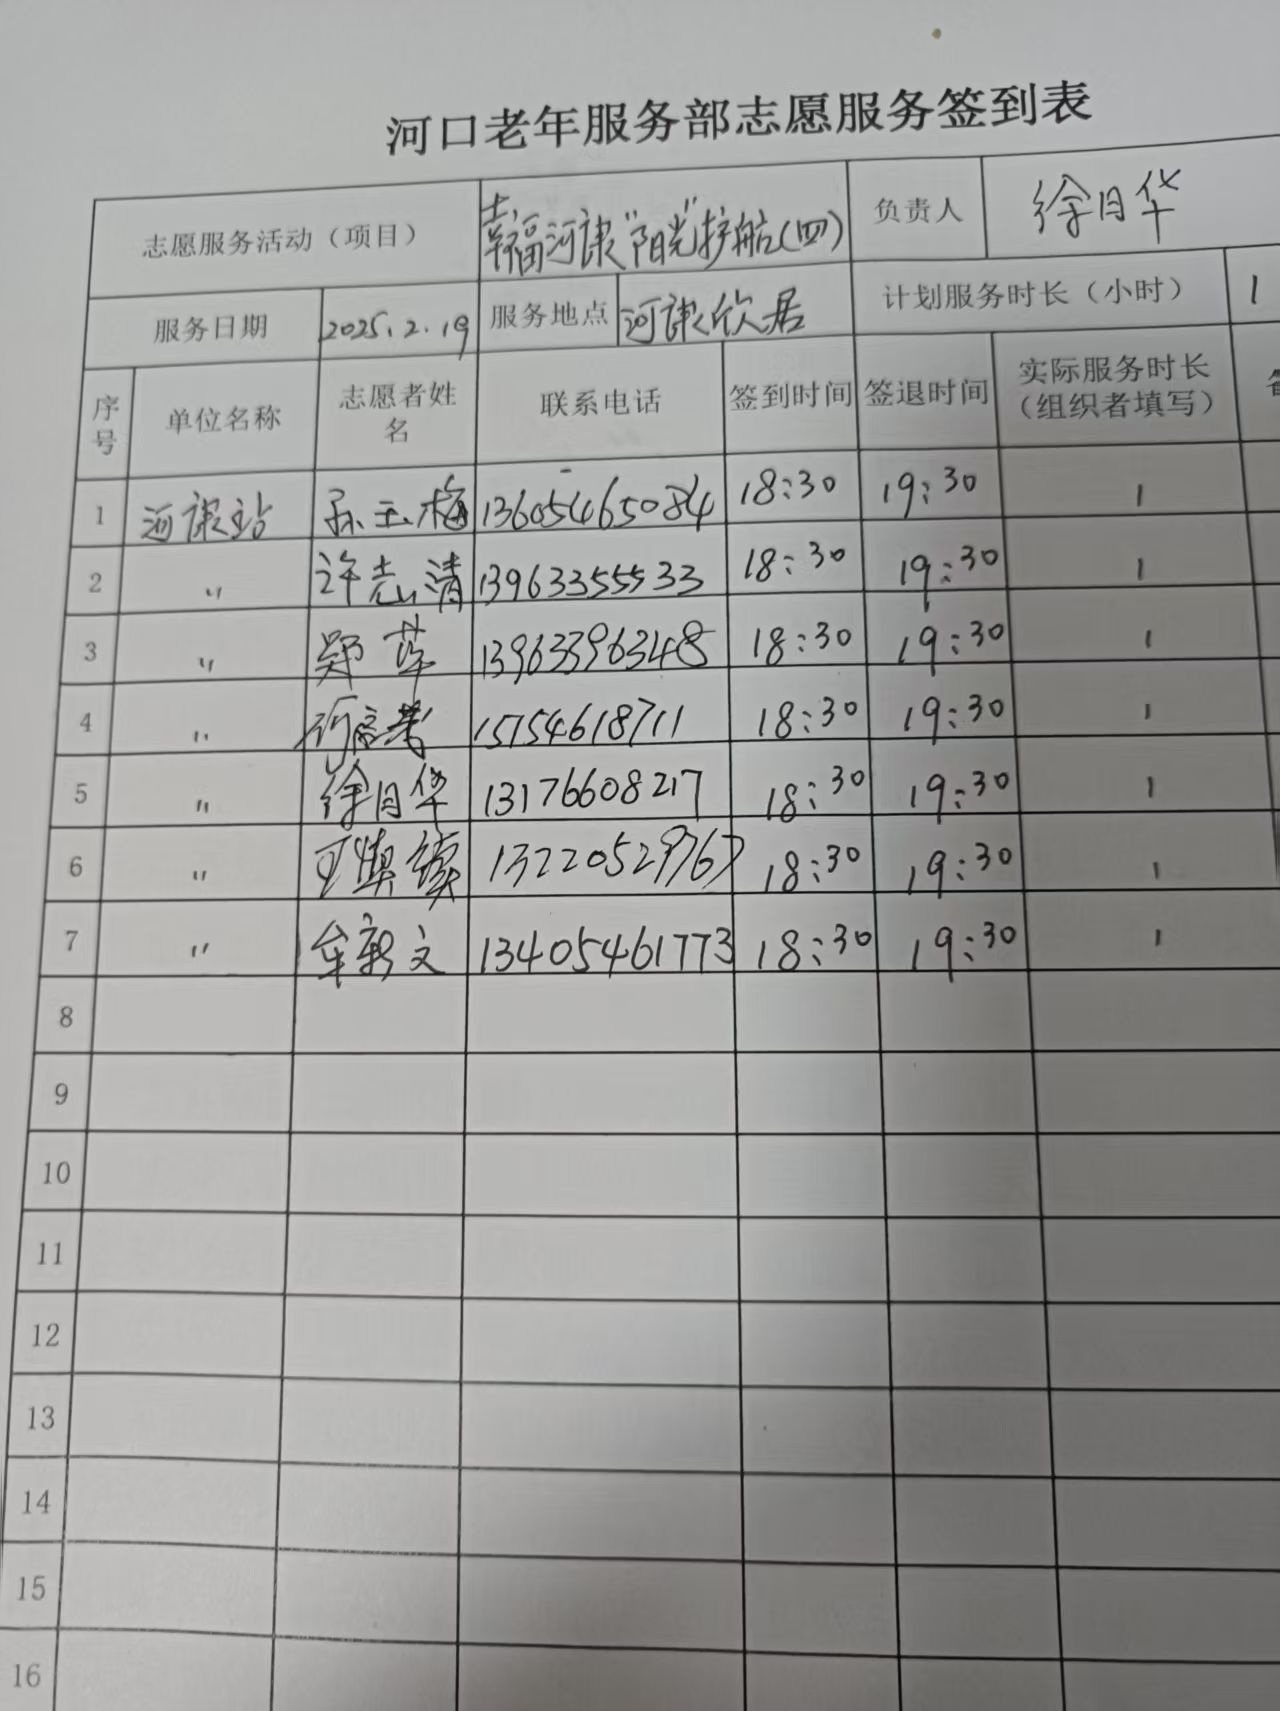 河口老年服务部志愿服务签到表
志愿服务活动（项目） 幸福河康“阳光”护航(四) 负责人 徐日华
服务日期 2025.2.19 服务地点 河康欣居 计划服务时长（小时） 1
序号 单位名称 志愿者姓名 联系电话 签到时间 签退时间 实际服务时长（组织者填写）
1 河康站 孙玉梅 13605465084 18:30 19:30 1
2 〃 许志清 13963355533 18:30 19:30 1
3 〃 郑萍 13963396348 18:30 19:30 1
4 〃 15154618711 18:30 19:30 1
5 〃 徐日华 13176608217 18:30 19:30 1
6 〃 13220529767 18:30 19:30 1
7 〃 牟新文 13405461773 18:30 19:30 1
8
9
10
11
12
13
14
15
16